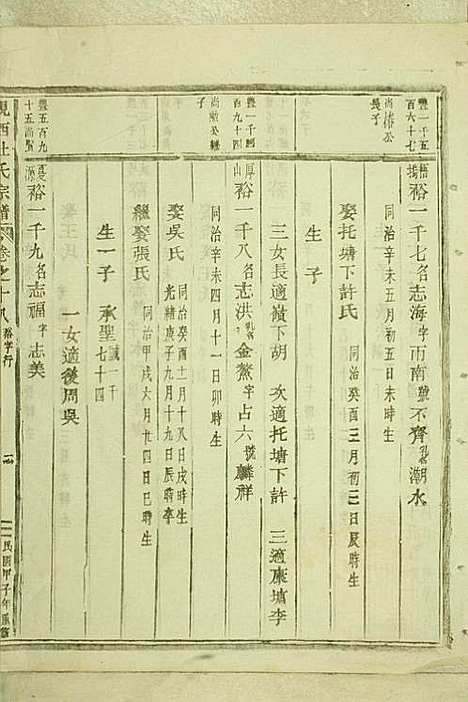 豊一千五
百六十七
尚椿公
長子
梧塢 裕一千七名志海字雨南號不齊乳名潮水
同治辛未五月初五日未時生
娶托塘下許氏 同治癸酉三月初三日辰時生
生子
三女長適嶺下胡 次適托塘下許 三適康墳李
豊一千四
百九十四
尚敞公嗣
子
厚山 裕一千八名志洪乳名金鰲字占六號麟祥
同治辛未四月十一日卯時生
娶吳氏 同治癸酉十二月十八日戌時生
光緒庚子九月十九日辰時卒
繼娶張氏 同治甲戌六月廿四日巳時生
生一子 承聖誠一千七十四
一女適後周吳
豊五百九
十五尚賢
夏源 裕一千九名志福字志美
峴西杜氏宗譜 卷之十八 裕字行
民國甲子年重修